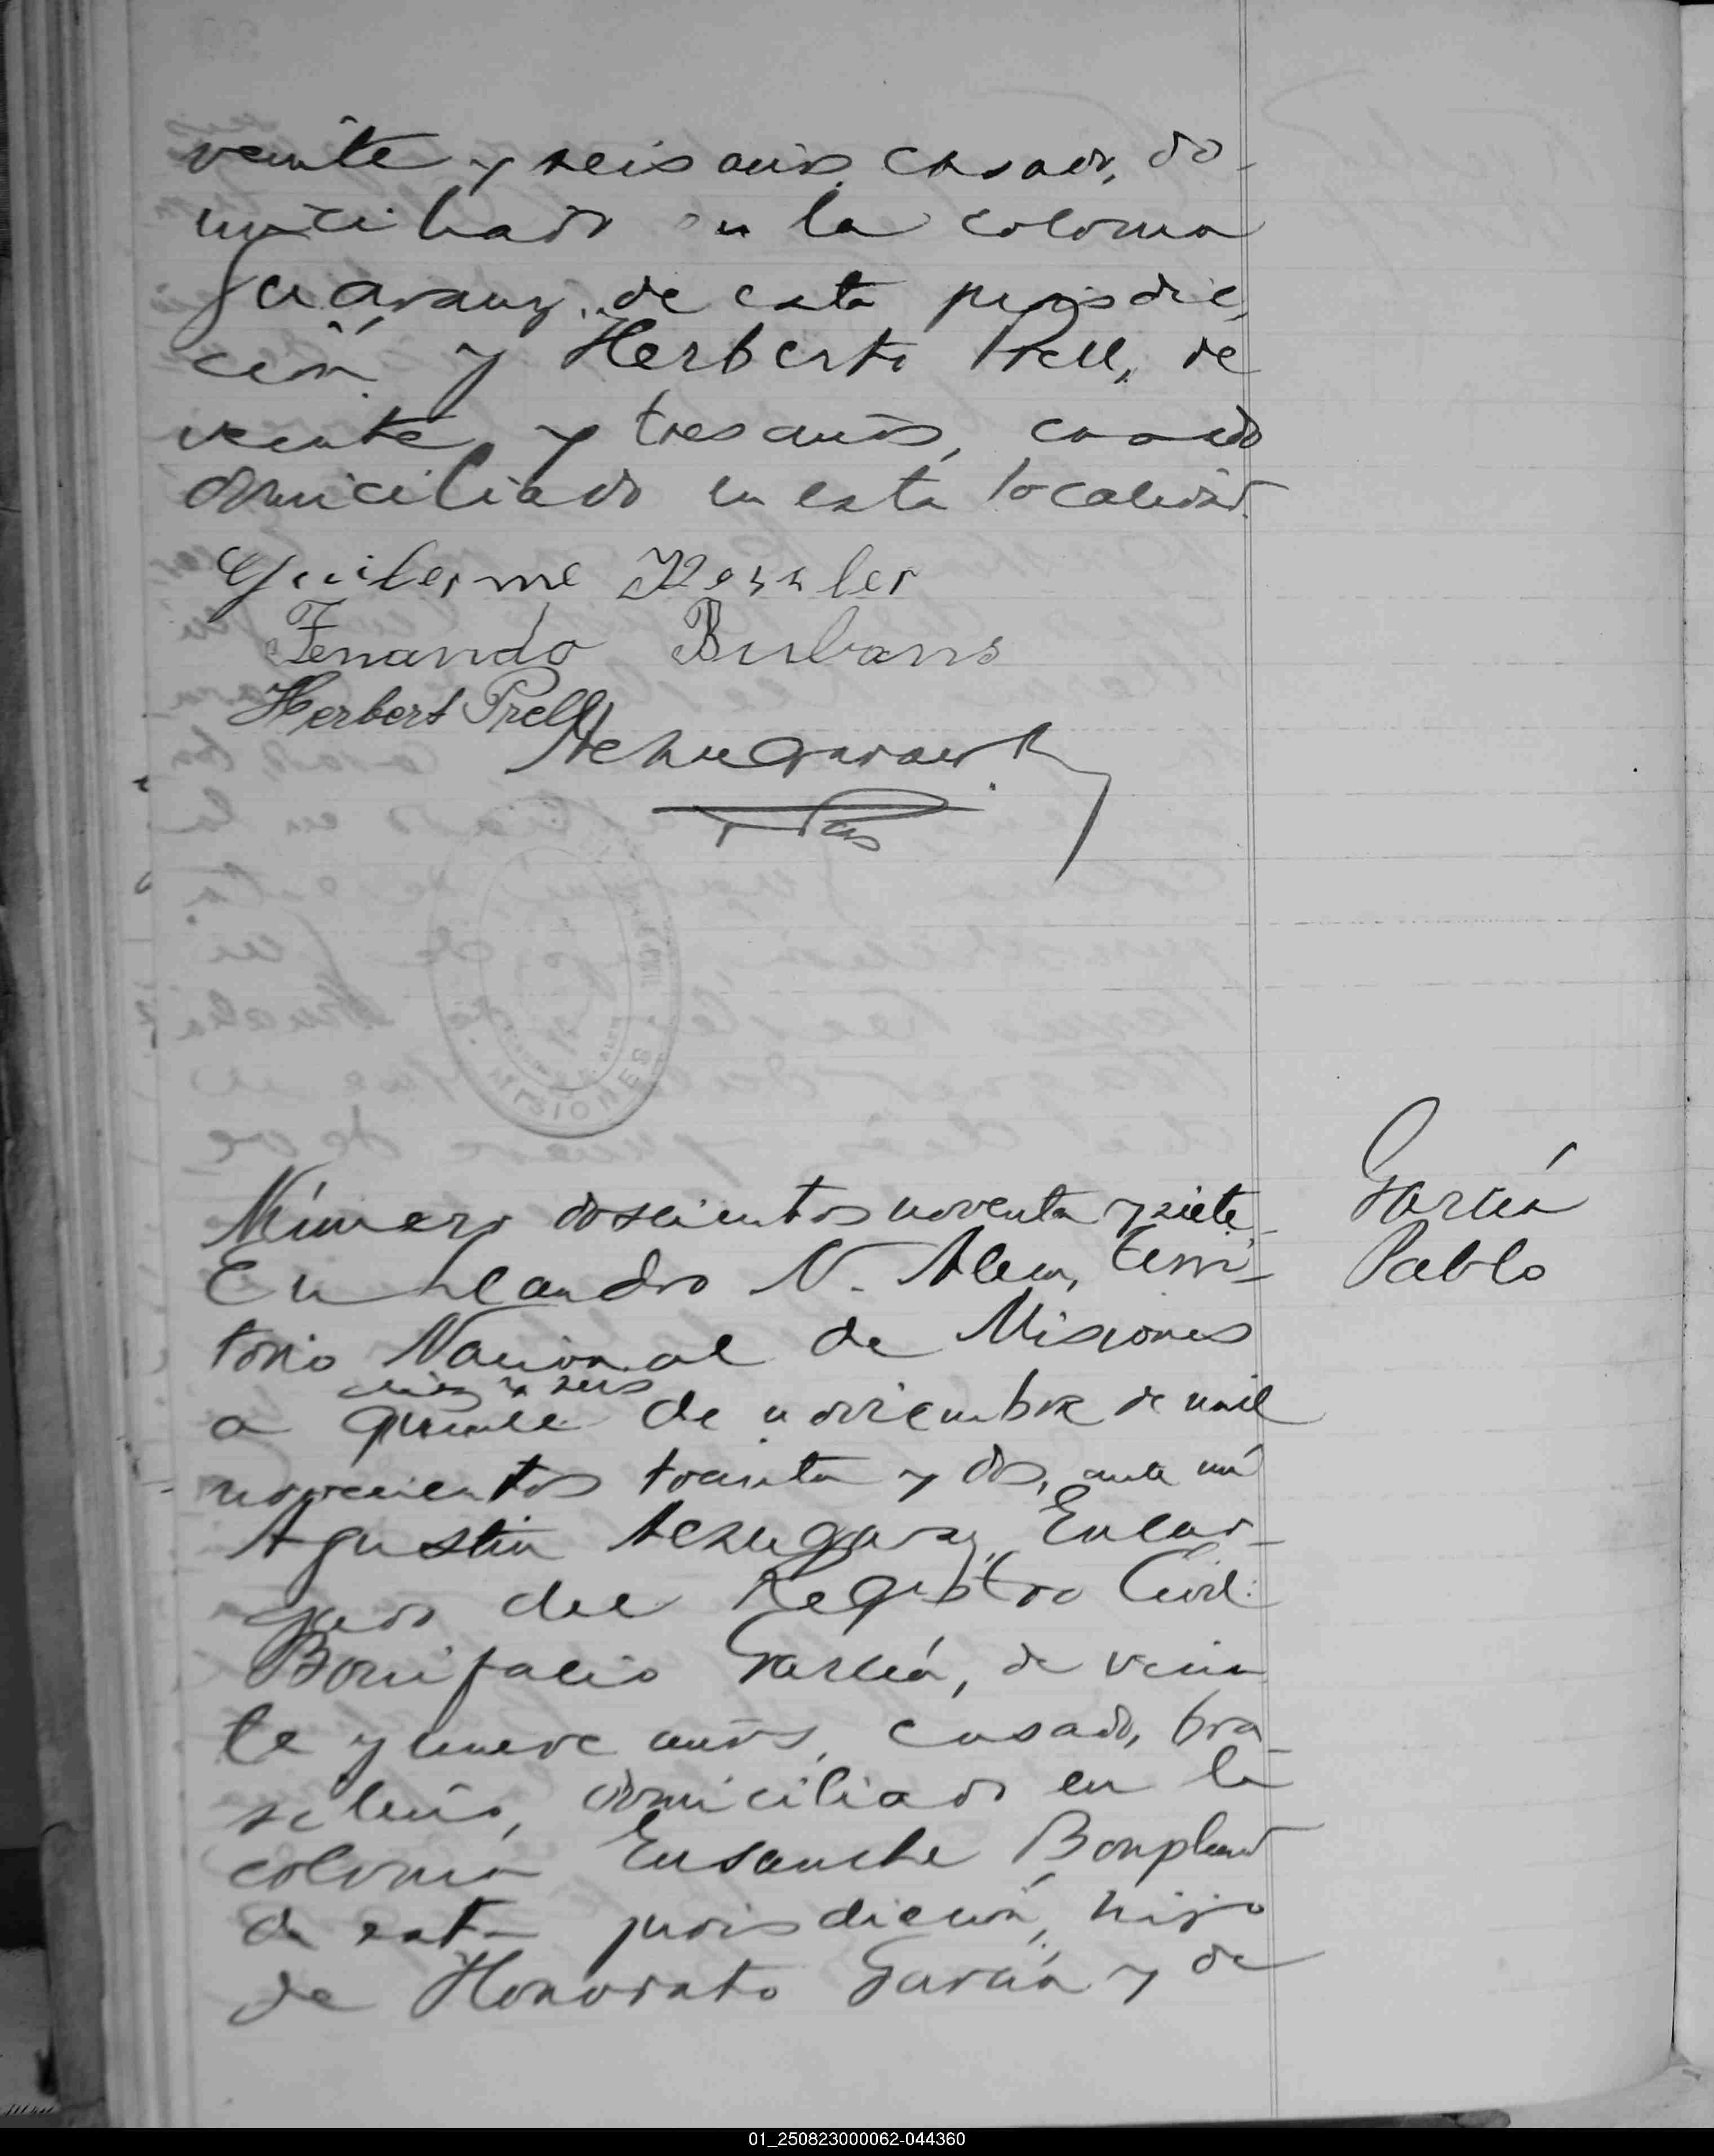 veinte y seis años, casado, do-
miciliado en la colonia
Guarany, de esta jurisdic,
ción y Herberto Prell, de
veinte y tres años, casado
domiciliado en esta localidad.
Guilerme Kessler
Fenando Burbans
Herbert Prell
Achugaray
García
Pablo
Número doscientos noventa y siete
En Leandro N. Alem, Terri-
torio Nacional de Misiones
diez y seis
a quince de noviembre de mil
novecientos treinta y dos, ante mí
Agustín Achugaray, Encar-
gado del Registro Civil:
Bonifacio García, de vein
te y nueve años, casado, bra-
sileño, domiciliado en la
colonia Ensanche Bonpland
de esta jurisdicción, hijo
de Honorato García y de
MISIONES
01_250823000062-044360